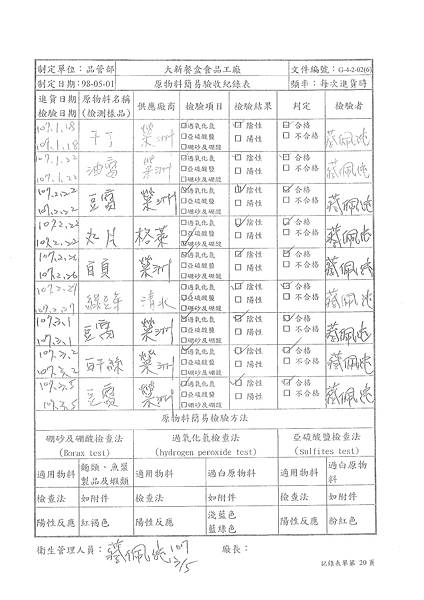 制定單位：品管部 大新餐盒食品工廠 文件編號：G-4-2-02(6)
制定日期：98-05-01 原物料簡易驗收紀錄表 頻率：每次進貨時
進貨日期 檢驗日期 原物料名稱 (檢測樣品) 供應廠商 檢驗項目 檢驗結果 判定 檢驗者
107.1.18 107.1.18 干丁 榮洲 ☑過氧化氫 □亞硫酸鹽 □硼砂及硼酸 ☑陰性 □陽性 ☑合格 □不合格
107.1.22 107.1.22 油腐 榮洲 ☑過氧化氫 □亞硫酸鹽 □硼砂及硼酸 ☑陰性 □陽性 ☑合格 □不合格
107.2.22 107.2.22 豆腐 榮洲 ☑過氧化氫 □亞硫酸鹽 □硼砂及硼酸 ☑陰性 □陽性 ☑合格 □不合格
107.2.22 107.2.22 片 格萊 □過氧化氫 □亞硫酸鹽 ☑硼砂及硼酸 ☑陰性 □陽性 ☑合格 □不合格
107.2.26 107.2.26 榮洲 ☑過氧化氫 □亞硫酸鹽 □硼砂及硼酸 ☑陰性 □陽性 ☑合格 □不合格
107.2.27 107.2.27 綠豆芽 清水 過氧化氫 亞硫酸鹽 □硼砂及硼酸 ☑陰性 □陽性 ☑合格 □不合格
107.3.1 107.3.1 豆腐 榮洲 ☑過氧化氫 □亞硫酸鹽 □硼砂及硼酸 ☑陰性 □陽性 ☑合格 □不合格
107.3.2 107.3.2 絲 榮洲 ☑過氧化氫 □亞硫酸鹽 □硼砂及硼酸 ☑陰性 □陽性 ☑合格 □不合格
107.3.5 107.3.5 豆腐 榮洲 ☑過氧化氫 □亞硫酸鹽 □硼砂及硼酸 ☑陰性 □陽性 ☑合格 □不合格
原物料簡易檢驗方法
硼砂及硼酸檢查法 過氧化氫檢查法 亞硫酸鹽檢查法
(Borax test) (hydrogen peroxide test) (Sulfites test)
適用物料 麵類、魚漿製品及蝦類 適用物料 過白原物料 適用物料 過白原物料
檢查法 如附件 檢查法 如附件 檢查法 如附件
陽性反應 紅褐色 陽性反應 淺藍色 藍綠色 陽性反應 粉紅色
衛生管理人員： 107 3/5 廠長：
記錄表單第 20 頁